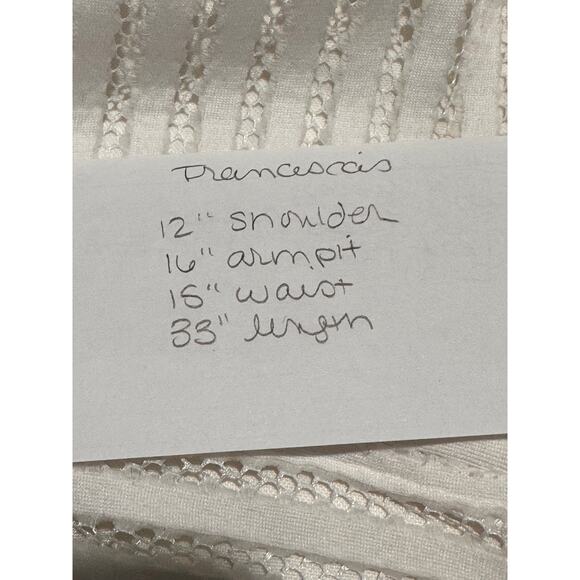 Francesca's
12" shoulder
16" armpit
15" waist
33" length